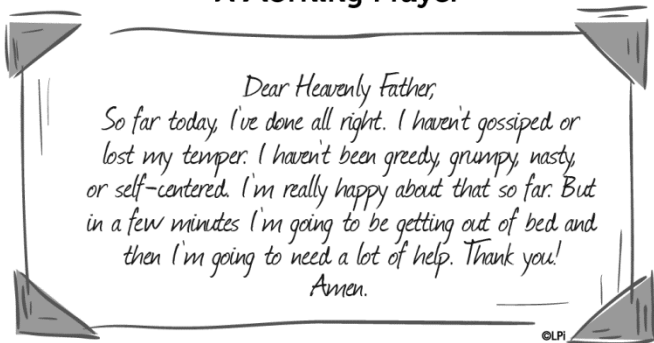 A Morning Prayer
Dear Heavenly Father,
So far today, I've done all right. I haven't gossiped or
lost my temper. I haven't been greedy, grumpy, nasty,
or self-centered. I'm really happy about that so far. But
in a few minutes I'm going to be getting out of bed and
then I'm going to need a lot of help. Thank you!
Amen.
©LPi